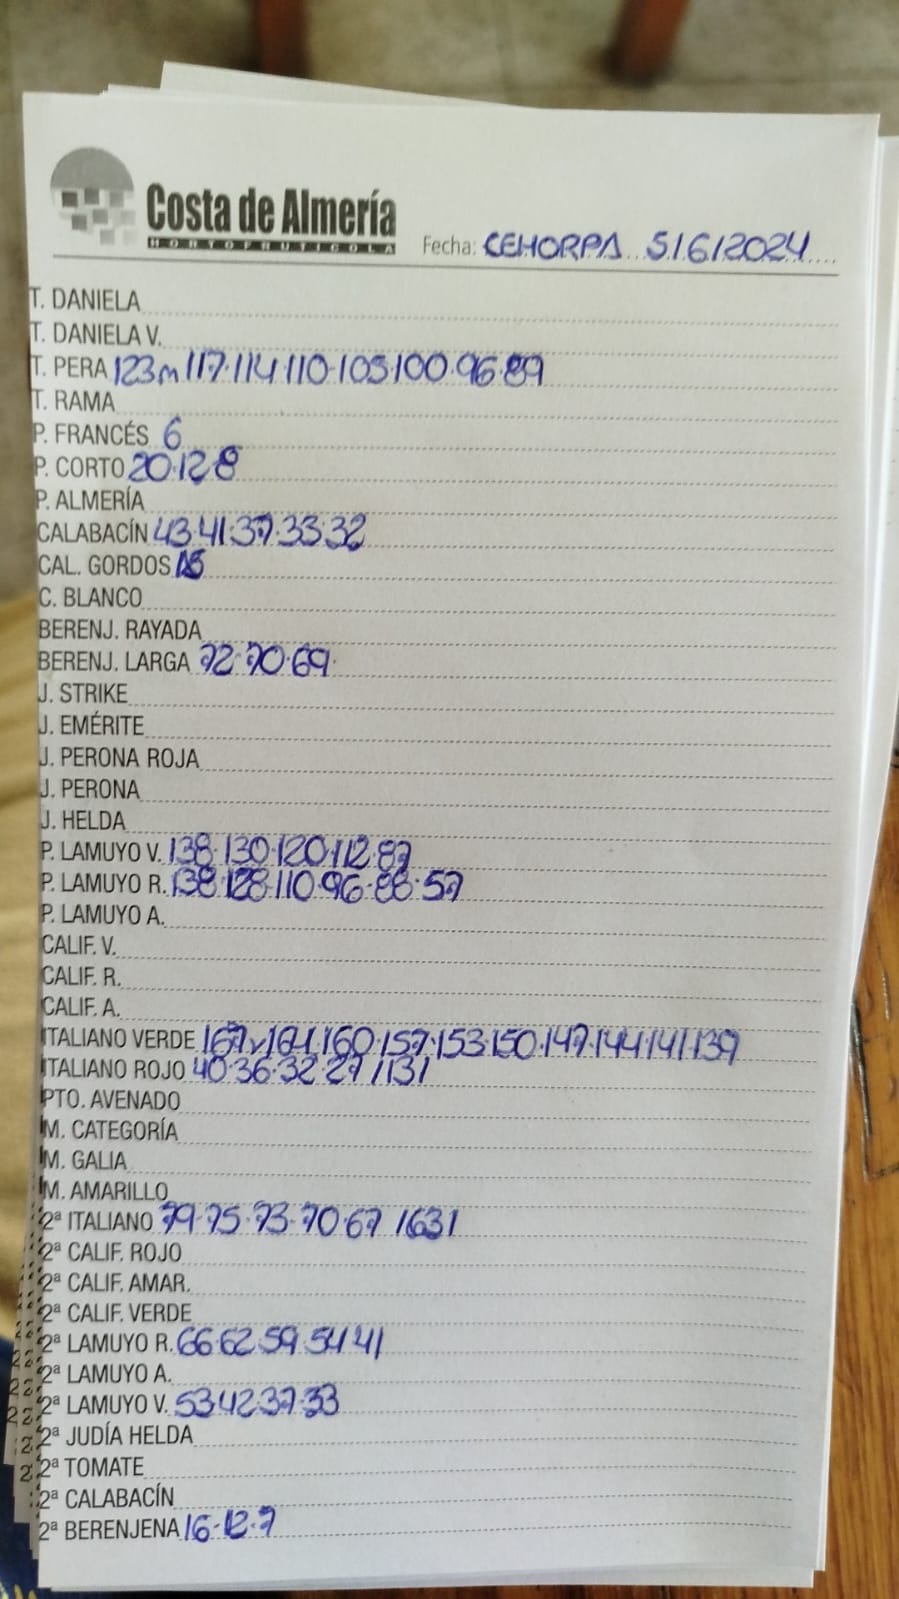 Costa de Almería
HORTOFRUTICOLA
Fecha: CEHORPA 5/6/2024
T. DANIELA
T. DANIELA V.
T. PERA 123m 117·114·110·105·100·96·89
T. RAMA
P. FRANCÉS 6
P. CORTO 20·12·8
P. ALMERÍA
CALABACÍN 43·41·37·33·32
CAL. GORDOS
C. BLANCO
BERENJ. RAYADA
BERENJ. LARGA 72·70·69
J. STRIKE
J. EMÉRITE
J. PERONA ROJA
J. PERONA
J. HELDA
P. LAMUYO V. 138·130·120·112·87
P. LAMUYO R. 138·128·110·96·88·57
P. LAMUYO A.
CALIF. V.
CALIF. R.
CALIF. A.
ITALIANO VERDE 167v 164 160·157·153·150·147·144·141·139
ITALIANO ROJO 40·36·32·27 /13/
PTO. AVENADO
M. CATEGORÍA
M. GALIA
M. AMARILLO
2ª ITALIANO 79·75·73·70·67 /63/
2ª CALIF. ROJO
2ª CALIF. AMAR.
2ª CALIF. VERDE
2ª LAMUYO R. 66·62·59·54·41
2ª LAMUYO A.
2ª LAMUYO V. 53·42·37·33
2ª JUDÍA HELDA
2ª TOMATE
2ª CALABACÍN
2ª BERENJENA 16·12·7